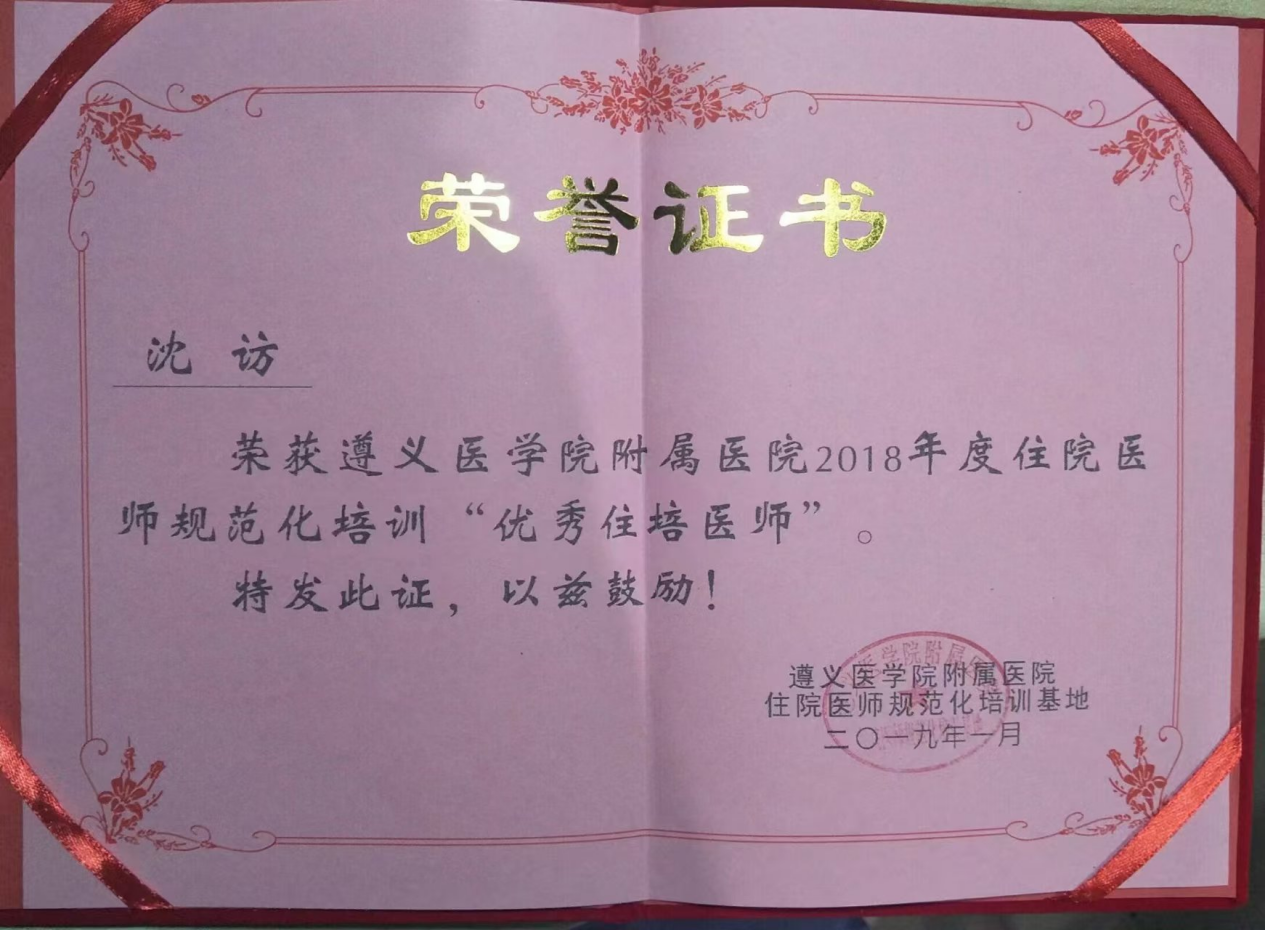 荣誉证书
沈访
荣获遵义医学院附属医院2018年度住院医
师规范化培训“优秀住培医师”。
特发此证，以兹鼓励！
遵义医学院附属医院
住院医师规范化培训基地
二〇一九年一月